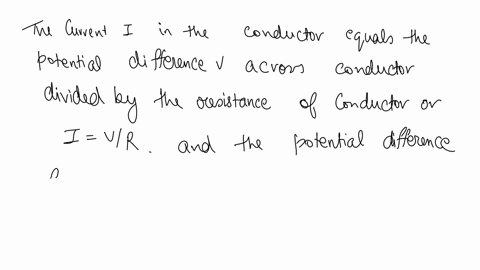 The Current I in the conductor equals the
potential difference v across conductor
divided by the resistance of Conductor or
I = V/R. and the potential difference